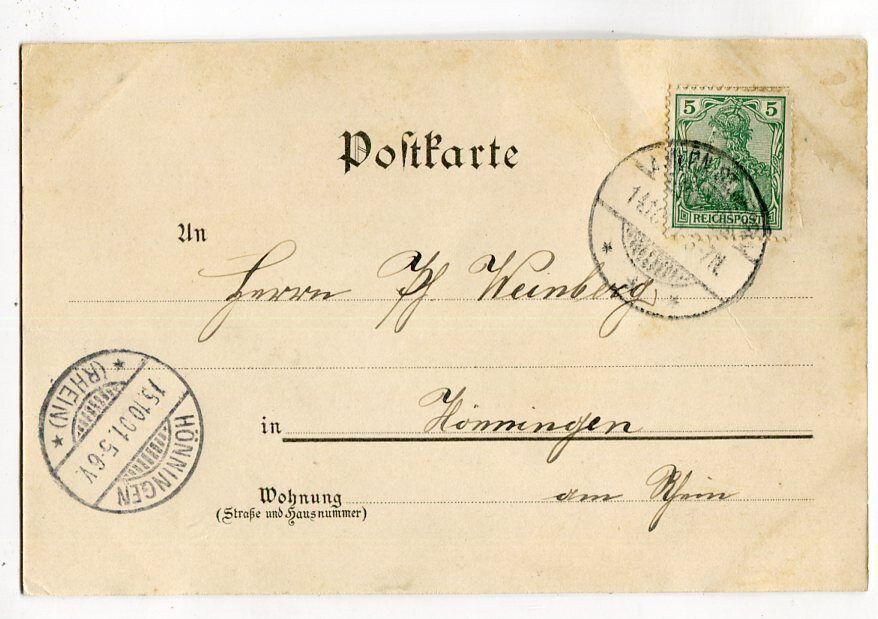 Postkarte
5 5
REICHSPOST
An
Herrn Ph Weinberg
in Hönningen
am Rhein
Wohnung
(Straße und Hausnummer)
HÖNNINGEN
15.10.01.5-6V.
* (RHEIN) *